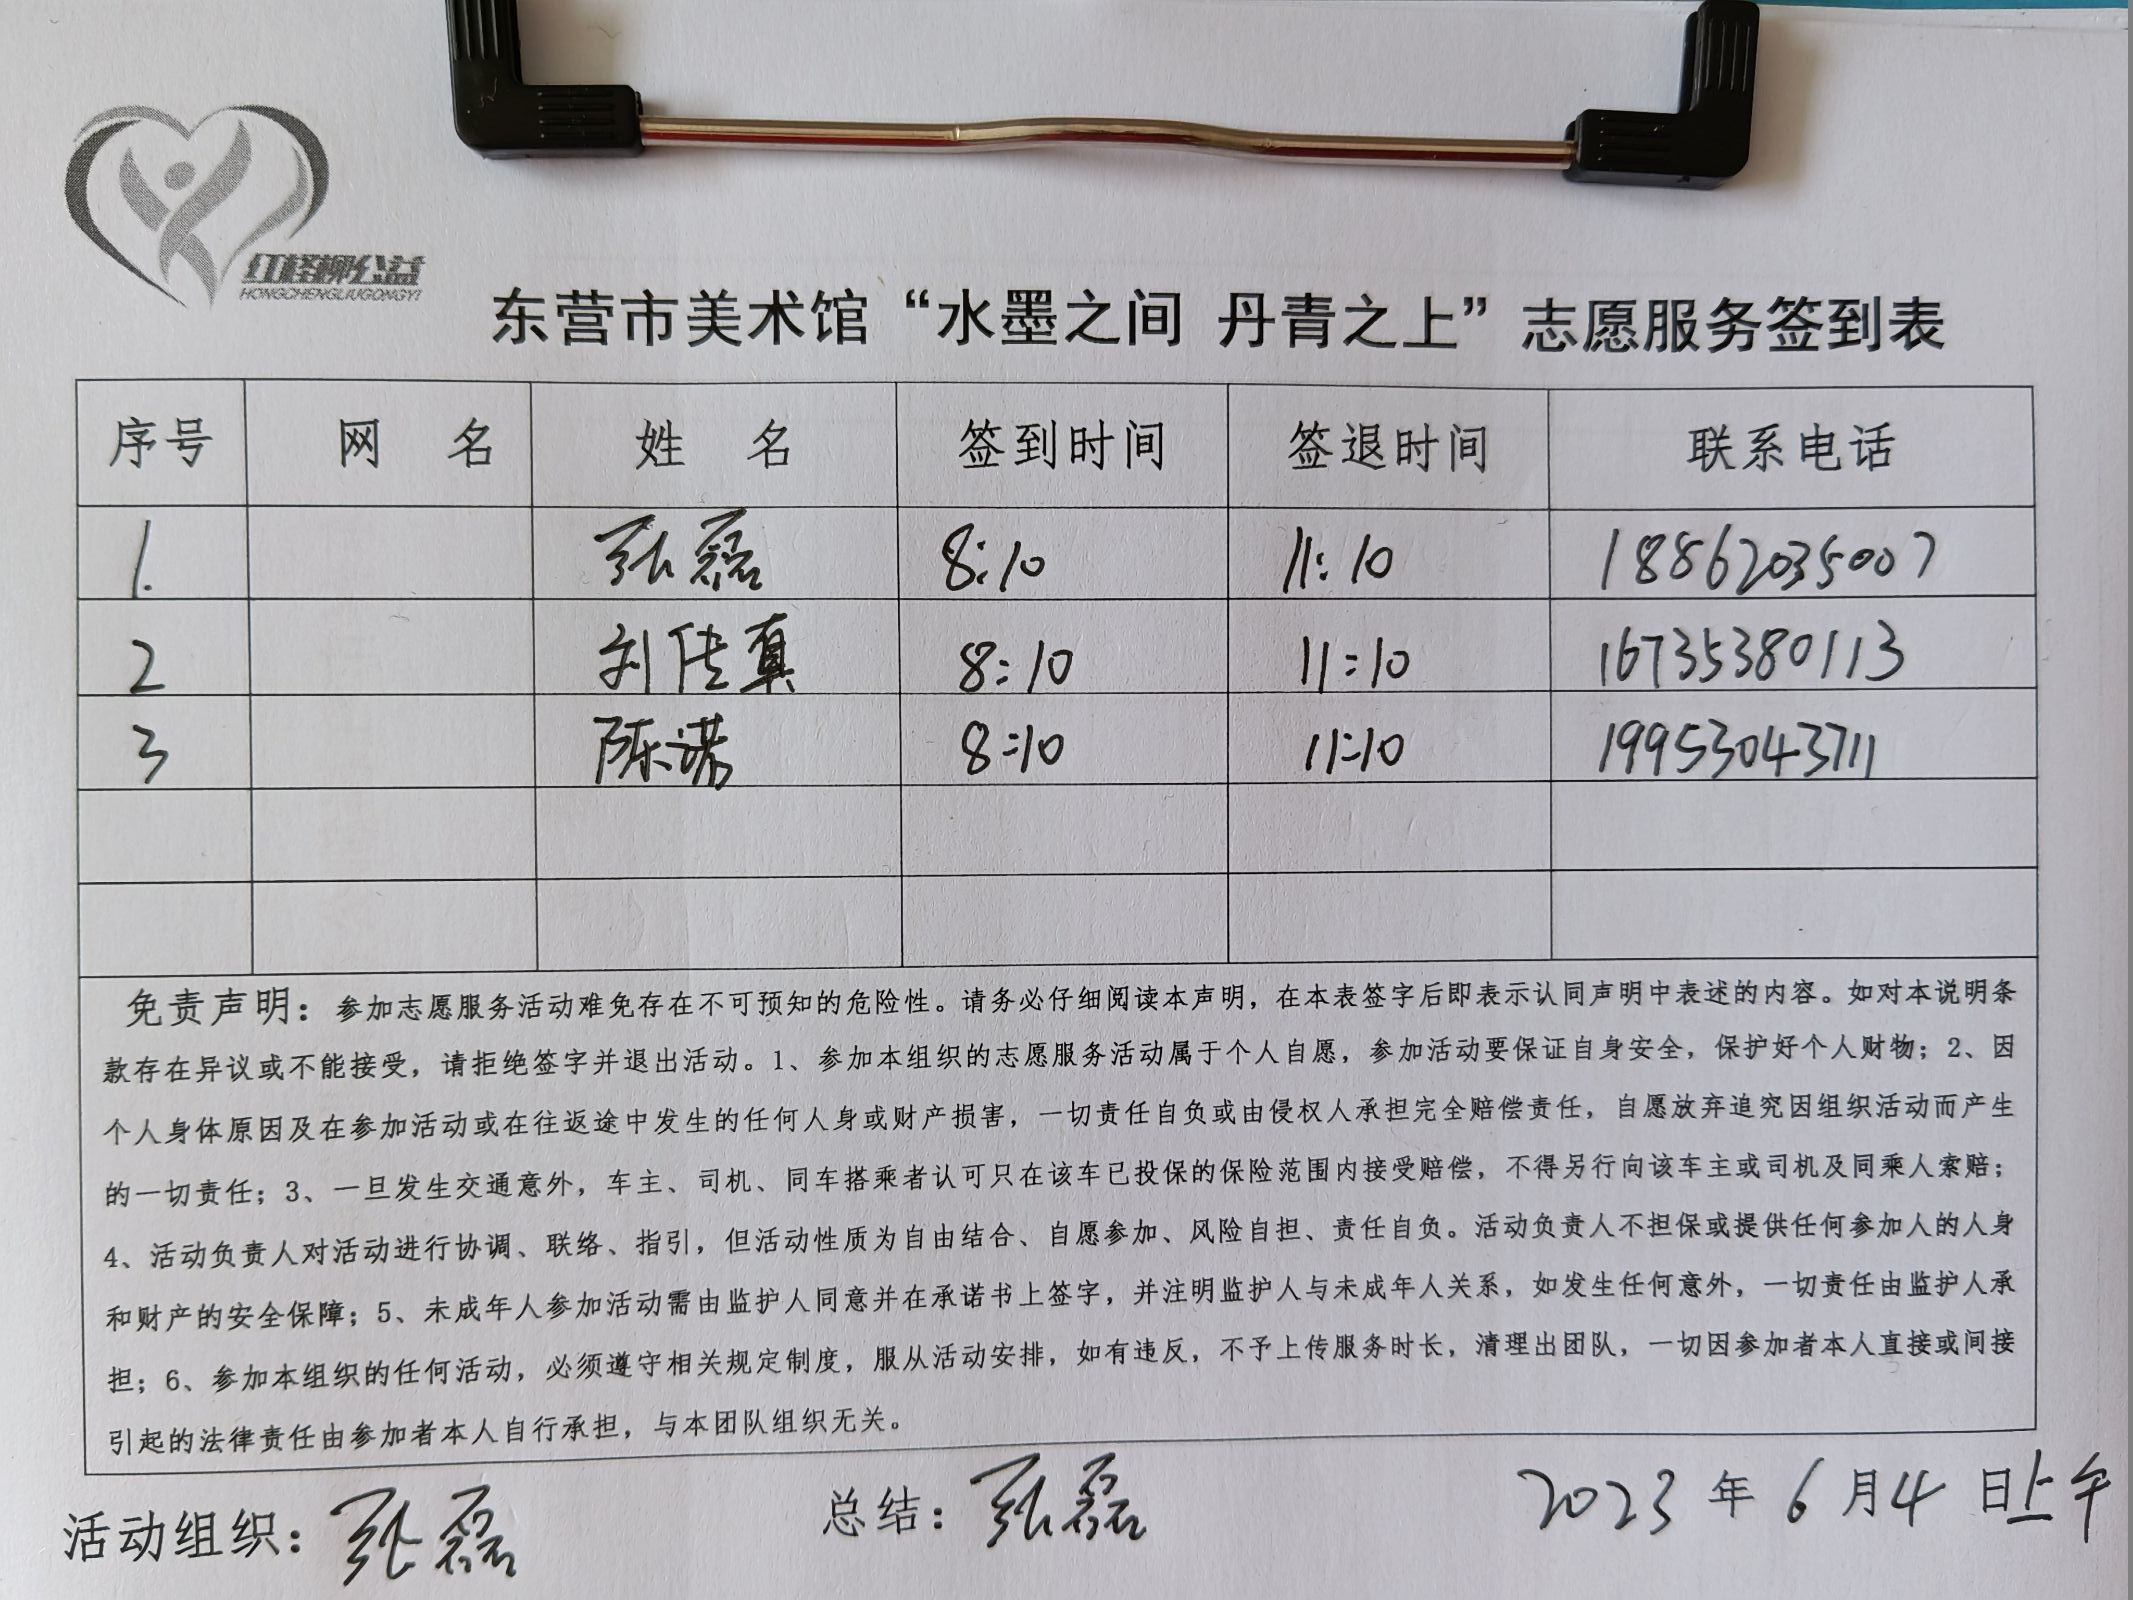 红柽柳公益
HONGCHENGLIUGONGYI
东营市美术馆“水墨之间 丹青之上”志愿服务签到表
序号 网 名 姓 名 签到时间 签退时间 联系电话
1. 张磊 8:10 11:10 18862035007
2 刘传真 8:10 11:10 16735380113
3 陈诺 8:10 11:10 19953043711
免责声明：参加志愿服务活动难免存在不可预知的危险性。请务必仔细阅读本声明，在本表签字后即表示认同声明中表述的内容。如对本说明条
款存在异议或不能接受，请拒绝签字并退出活动。1、参加本组织的志愿服务活动属于个人自愿，参加活动要保证自身安全，保护好个人财物；2、因
个人身体原因及在参加活动或在往返途中发生的任何人身或财产损害，一切责任自负或由侵权人承担完全赔偿责任，自愿放弃追究因组织活动而产生
的一切责任；3、一旦发生交通意外，车主、司机、同车搭乘者认可只在该车已投保的保险范围内接受赔偿，不得另行向该车主或司机及同乘人索赔；
4、活动负责人对活动进行协调、联络、指引，但活动性质为自由结合、自愿参加、风险自担、责任自负。活动负责人不担保或提供任何参加人的人身
和财产的安全保障；5、未成年人参加活动需由监护人同意并在承诺书上签字，并注明监护人与未成年人关系，如发生任何意外，一切责任由监护人承
担；6、参加本组织的任何活动，必须遵守相关规定制度，服从活动安排，如有违反，不予上传服务时长，清理出团队，一切因参加者本人直接或间接
引起的法律责任由参加者本人自行承担，与本团队组织无关。
活动组织：张磊 总结：张磊 2023年6月4日上午